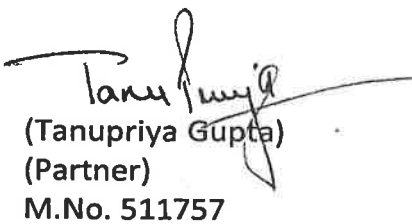 Tanupriya
(Tanupriya Gupta)
(Partner)
M.No. 511757